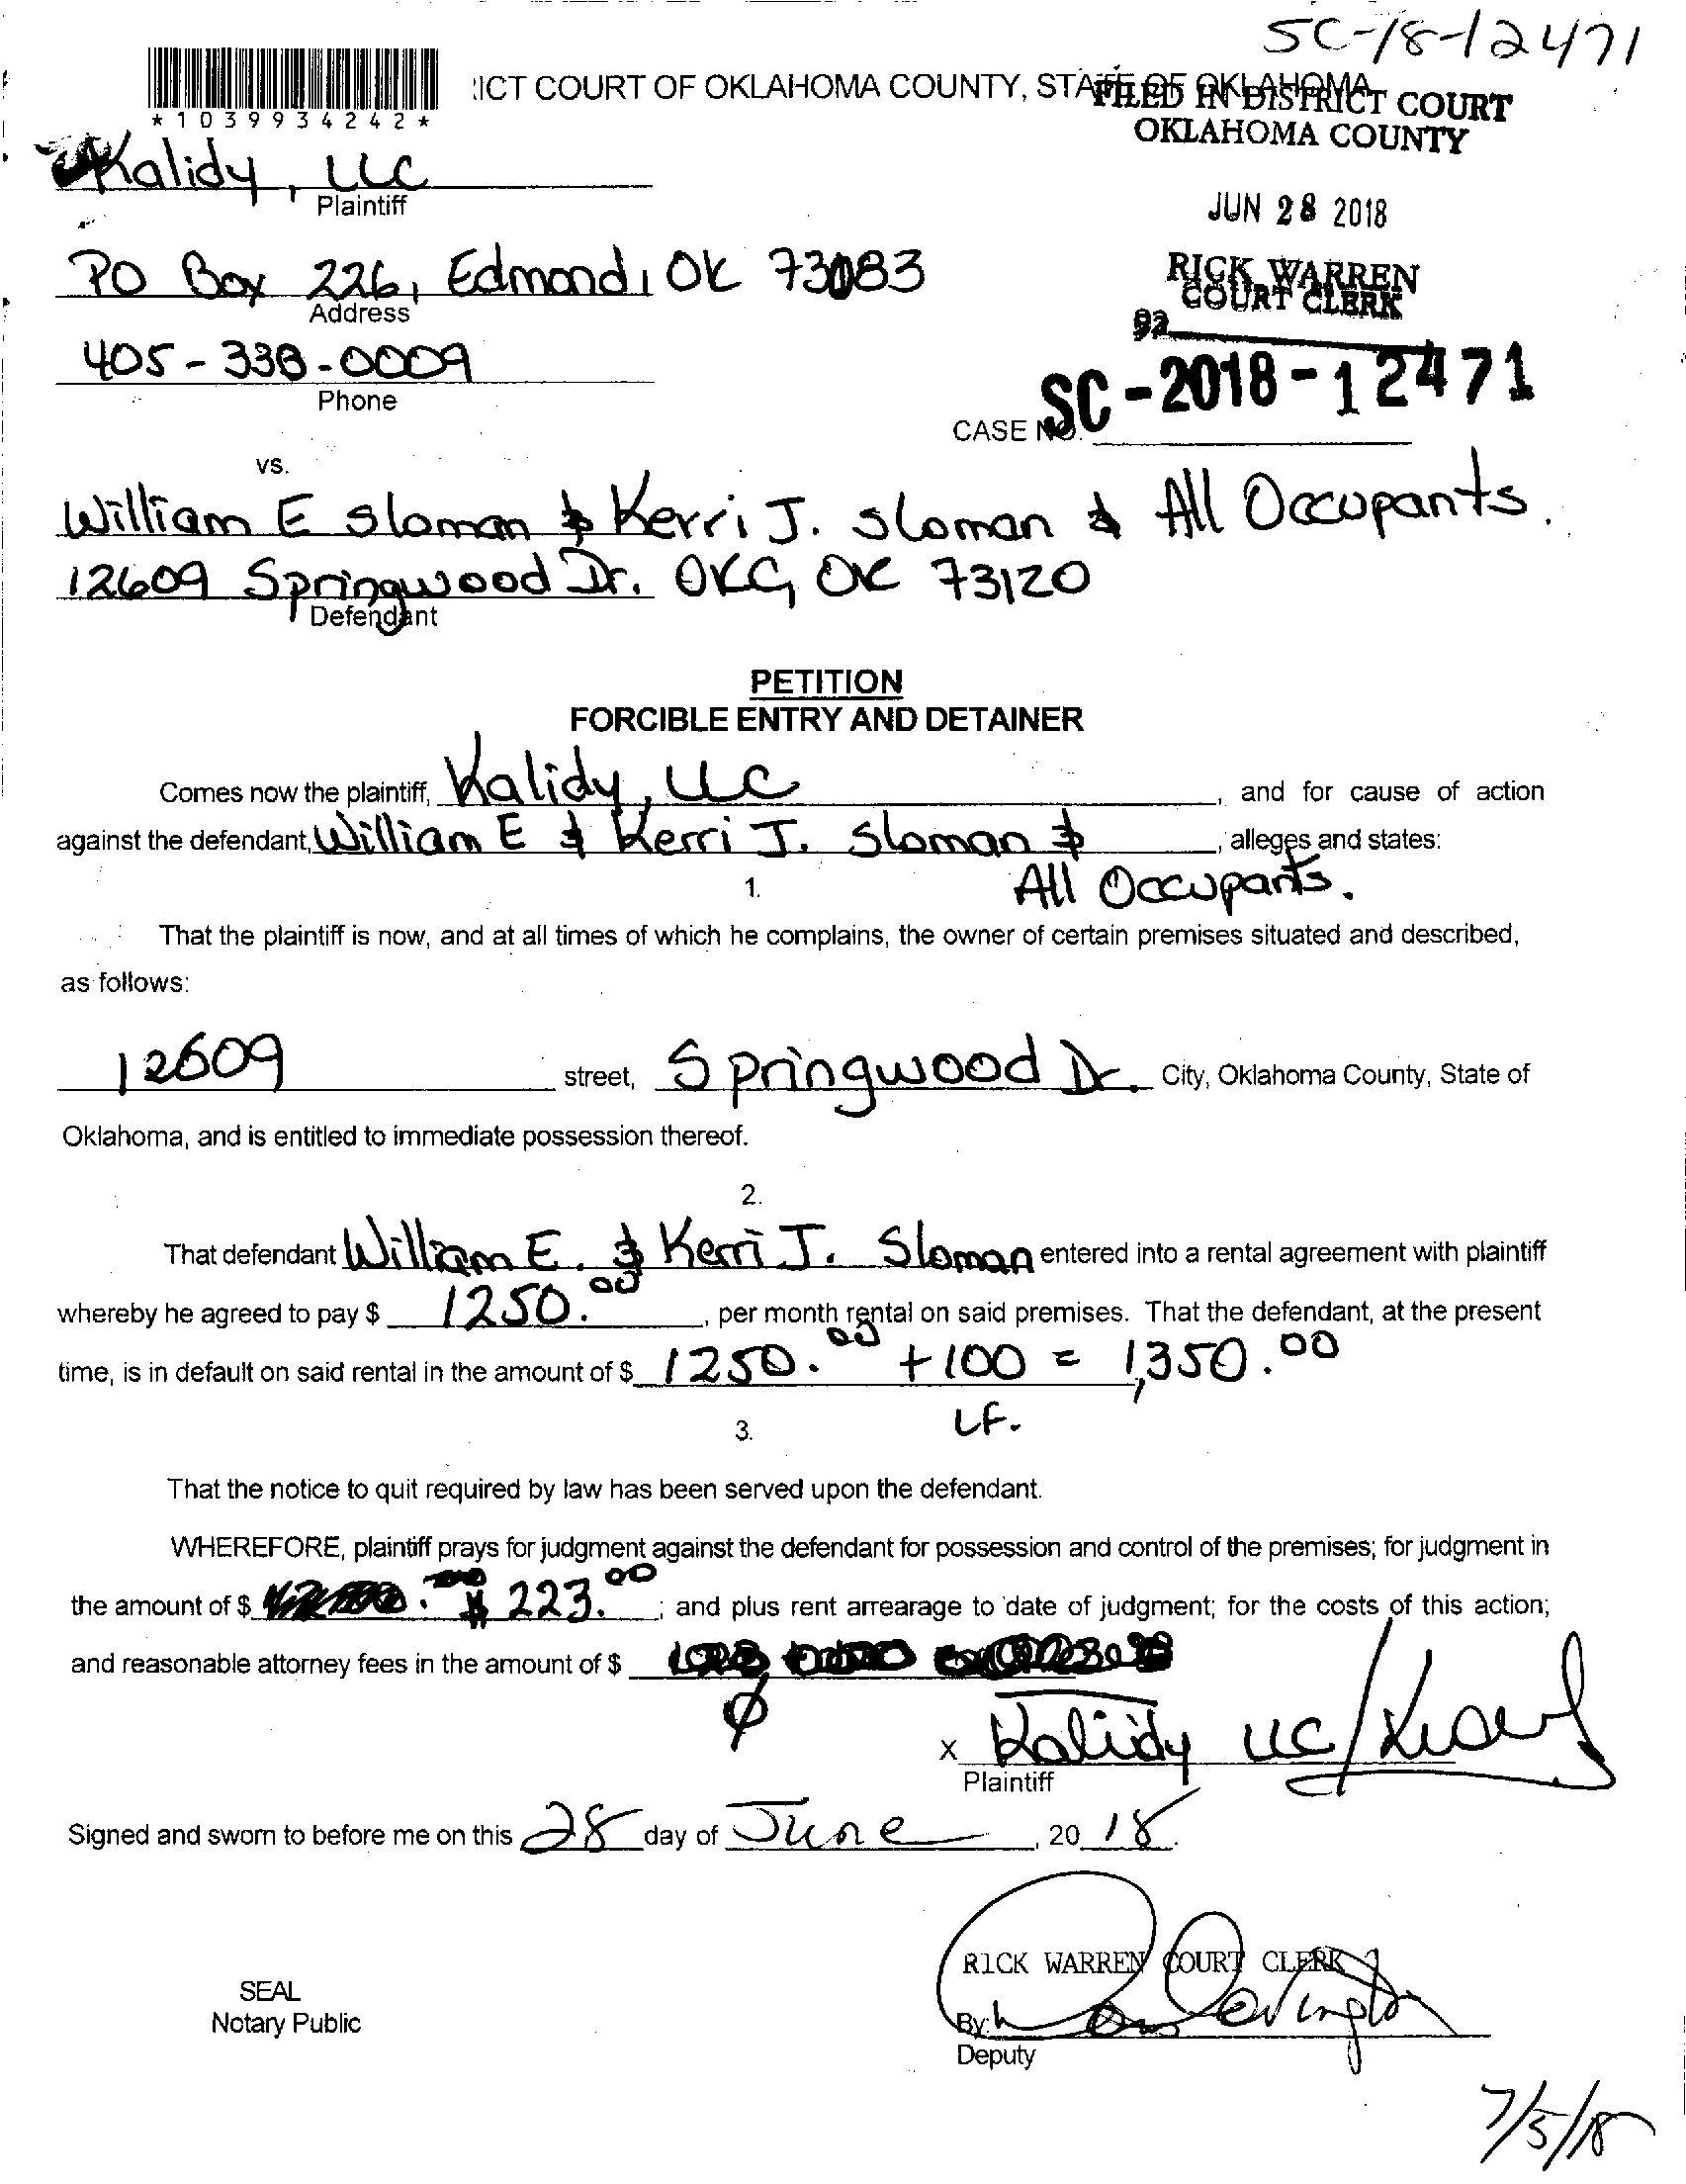 SC-18-12471
ICT COURT OF OKLAHOMA COUNTY, STATE OF OKLAHOMA
*1039934242*
FILED IN DISTRICT COURT
OKLAHOMA COUNTY
Kalidy, LLC
Plaintiff
JUN 28 2018
PO Box 226, Edmond, OK 73083
Address
RICK WARREN
COURT CLERK
92
405-338-0009
Phone
CASE NO. SC-2018-12471
vs.
William E Sloman & Kerri J. Sloman & All Occupants.
12609 Springwood Dr. OKC, OK 73120
Defendant
PETITION
FORCIBLE ENTRY AND DETAINER
Comes now the plaintiff, Kalidy, LLC, and for cause of action
against the defendant, William E & Kerri J. Sloman &, alleges and states:
All Occupants.
1.
That the plaintiff is now, and at all times of which he complains, the owner of certain premises situated and described,
as follows:
12609 street, Springwood Dr. City, Oklahoma County, State of
Oklahoma, and is entitled to immediate possession thereof.
2.
That defendant William E. & Kerri J. Sloman entered into a rental agreement with plaintiff
whereby he agreed to pay $ 1250.00, per month rental on said premises. That the defendant, at the present
time, is in default on said rental in the amount of $ 1250.00 + 100 = 1,350.00
LF.
3.
That the notice to quit required by law has been served upon the defendant.
WHEREFORE, plaintiff prays for judgment against the defendant for possession and control of the premises; for judgment in
the amount of $ $ 223.00; and plus rent arrearage to date of judgment; for the costs of this action;
and reasonable attorney fees in the amount of $
Ø
x Kalidy LLC/
Plaintiff
Signed and sworn to before me on this 28 day of June, 20 18.
RICK WARREN COURT CLERK
SEAL
Notary Public
By:
Deputy
7/5/18